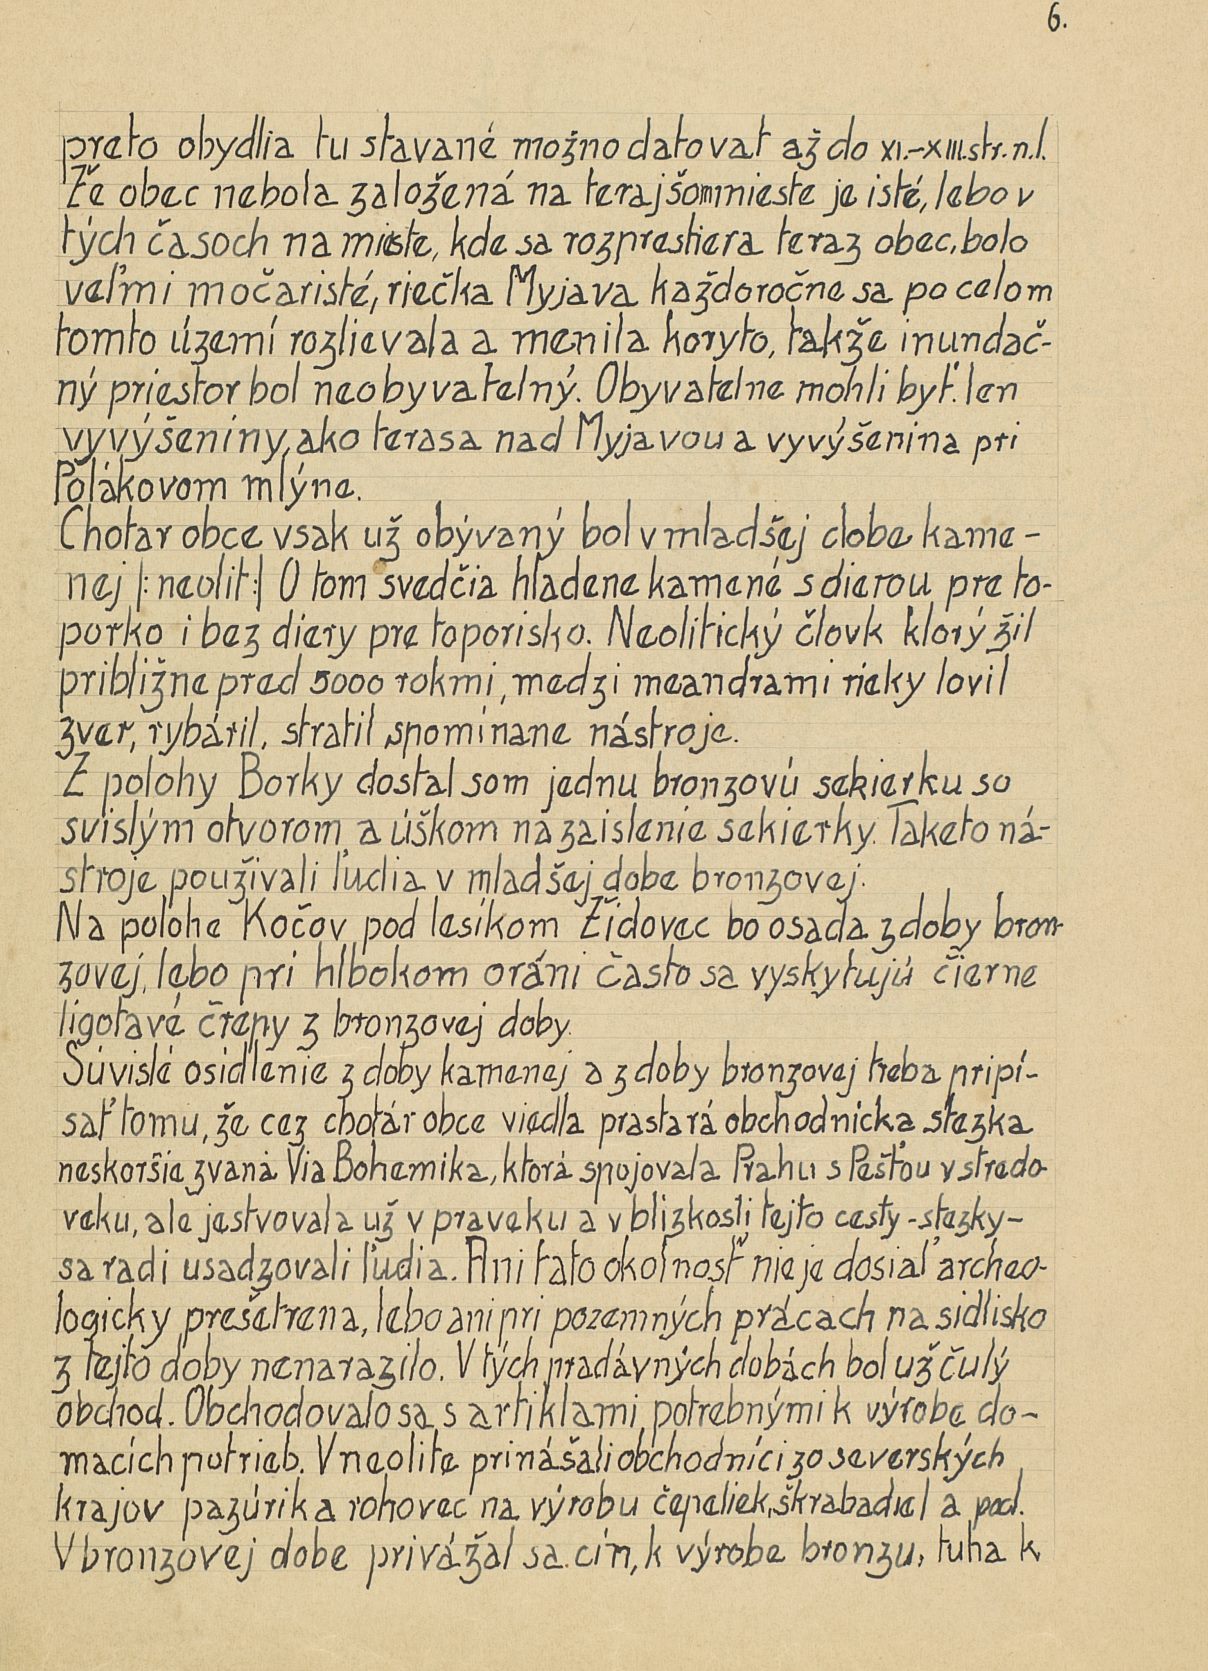 6.
preto obydlia tu stavané možno datovat až do XI.-XIII.str.n.l.
Že obec nebola založená na terajšom mieste je isté, lebo v
tých časoch na mieste, kde sa rozprestiera teraz obec, bolo
veľmi močaristé, riečka Myjava každoročne sa po celom
tomto území rozlievala a menila koryto, takže inundač-
ný priestor bol neobyvatelný. Obyvatelne mohli byť len
vyvýšeniny, ako terasa nad Myjavou a vyvýšenina pri
Polákovom mlýne.
Chotar obce vsak už obývaný bol v mladšej dobe kame-
nej |: neolit :| O tom svedčia hladene kamené s dierou pre to-
porko i bez diery pre toporisko. Neolitický človk ktorý žil
približne pred 5000 rokmi, medzi meandrami rieky lovil
zver, rybáril, stratil spomínane nástroje.
Z polohy Borky dostal som jednu bronzovú sekierku so
svislým otvorom a úškom na zaislenie sekierky. Taketo ná-
stroje použivali ľudia v mladšej dobe bronzovej.
Na polohe Kočov pod lesíkom Židovec bo osada z doby bron-
zovej, lebo pri hlbokom oráni často sa vyskytujú čierne
ligotavé črepy z bronzovej doby.
Súvislé osídlenie z doby kamenej a z doby bronzovej treba pripí-
sať tomu, že cez chotár obce viedla prastará obchodnícka stezka
neskoršie zvaná Via Bohemika, ktorá spojovala Prahu s Pešťou v stredo-
veku, ale jestvovala už v praveku a v blizkosti tejto cesty - stezky -
sa radi usadzovali ľudia. Ani tato okolnosť nie je dosiaľ archeo-
logicky prešetrena, lebo ani pri pozemných prácach na sidlisko
z tejto doby nenarazilo. V tých pradávných dobách bol už čulý
obchod. Obchodovalo sa s artiklami potrebnými k výrobe do-
macích potrieb. V neolite prinášali obchodníci zo severských
krajov pazúrik a rohovec na výrobu čepeliek, škrabadiel a pod.
V bronzovej dobe privážal sa cín, k výrobe bronzu, tuha k